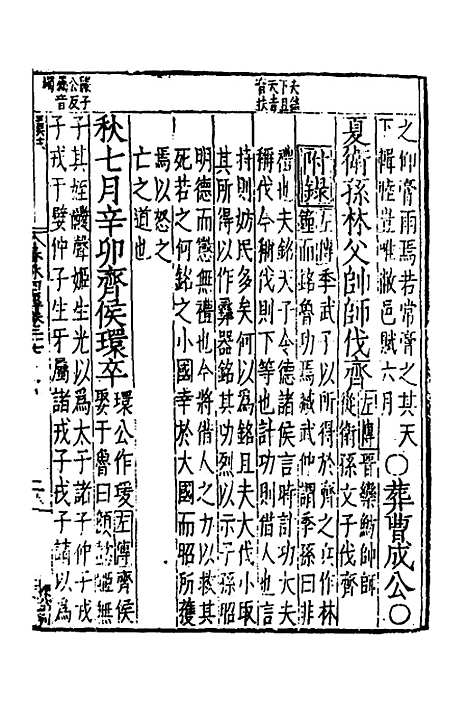 夫銘
下且
夫並
音扶
鬷子
公反
之仰膏雨焉若常膏之其天
下輯睦豈唯敝邑賦六月
○葬曹成公○
夏衛孫林父帥師伐齊
左傳晉欒魴帥師
從衛孫文子伐齊
附錄
左傳季武子以所得於齊之兵作林
鐘而銘魯功焉臧武仲謂季孫曰非
禮也夫銘天子令德諸侯言時計功大夫
稱伐今稱伐則下等也計功則借人也言
時則妨民多矣何以為銘且夫大伐小取
其所得以作彝器銘其功烈以示子孫昭
明德而懲無禮也今將借人之力以救其
死若之何銘之小國幸於大國而昭所獲
焉以怒之
亡之道也
秋七月辛卯齊侯環卒
環公作瑗左傳齊侯
娶于魯曰顏懿姬無
子其姪鬷聲姬生光以為太子諸子仲子戎
子戎子嬖仲子生牙屬諸戎子戎子請以爲